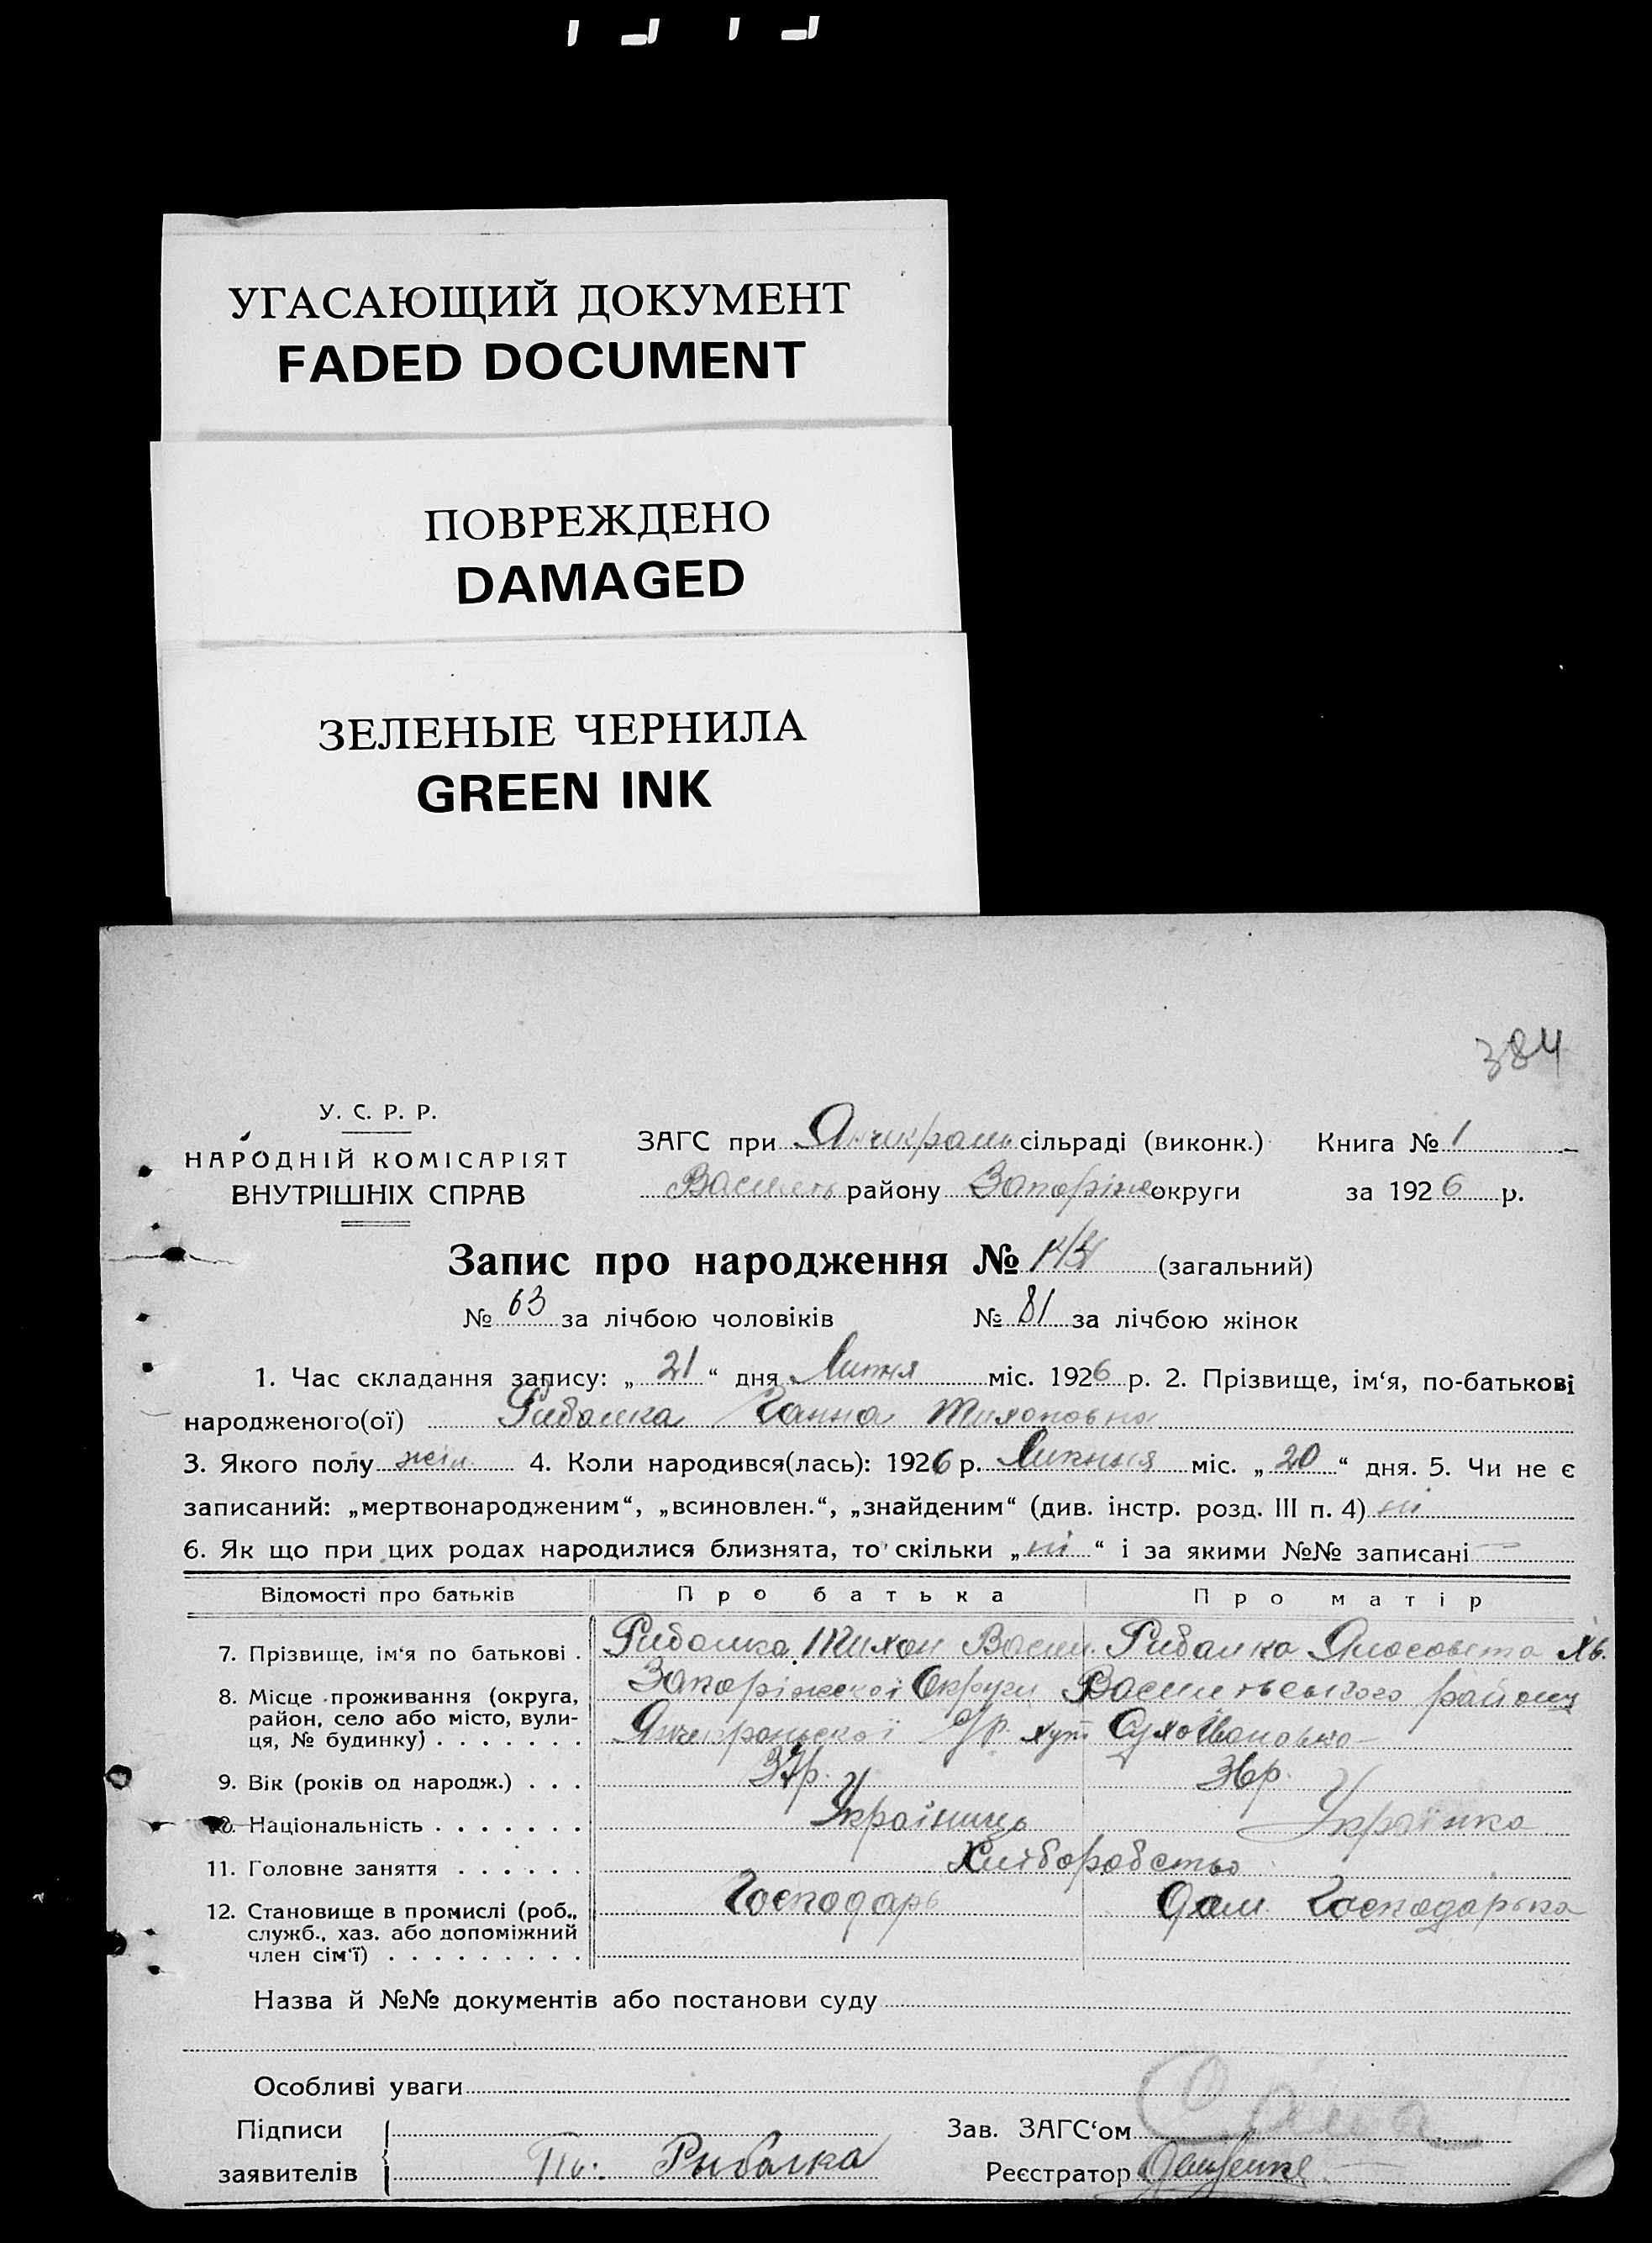 УГАСАЮЩИЙ ДОКУМЕНТ
FADED DOCUMENT
ПОВРЕЖДЕНО
DAMAGED
ЗЕЛЕНЫЕ ЧЕРНИЛА
GREEN INK
384
У. С. Р. Р.
НАРОДНІЙ КОМІСАРІЯТ
ВНУТРІШНІХ СПРАВ
ЗАГС при Янчикрань сільраді (виконк.) Книга № 1
Василь району Запоріж округи за 1926 р.
Запис про народження № (загальний)
№ 63 за лічбою чоловіків № 81 за лічбою жінок
1. Час складання запису: „ 21 “ дня Липня міс. 1926 р. 2. Прізвище, ім‘я, по-батькові
народженого(ої) Рибалка Ганна Тихоновна
3. Якого полу жін 4. Коли народився(лась): 1926 р. Липня міс. „ 20 “ дня. 5. Чи не є
записаний: „мертвонародженим“, „всиновлен.“, „знайденим“ (див. інстр. розд. III п. 4) ні
6. Як що при цих родах народилися близнята, то скільки „ ні “ і за якими №№ записані —
Відомості про батьків Про батька Про матір
7. Прізвище, ім‘я по батькові . Рибалка Тихон Васил. Рибалка Хв.
8. Місце проживання (округа, район, село або місто, вулиця, № будинку) . . . . . . . Запоріжської Округи Васильевського району
Янчекраньскої с/р. хут Сухоівановка
9. Вік (років од народж.) . . . 37р. 36р.
10. Національність . . . . . . . Українець Українка
11. Головне заняття . . . . . . Хліборобство
12. Становище в промислі (роб., служб., хаз. або допоміжний член сім‘ї) . . . . . . . . . Господарь Дом. Господарька
Назва й №№ документів або постанови суду
Особливі уваги
Підписи
заявителів Рыбалка
Зав. ЗАГС‘ом
Реєстратор